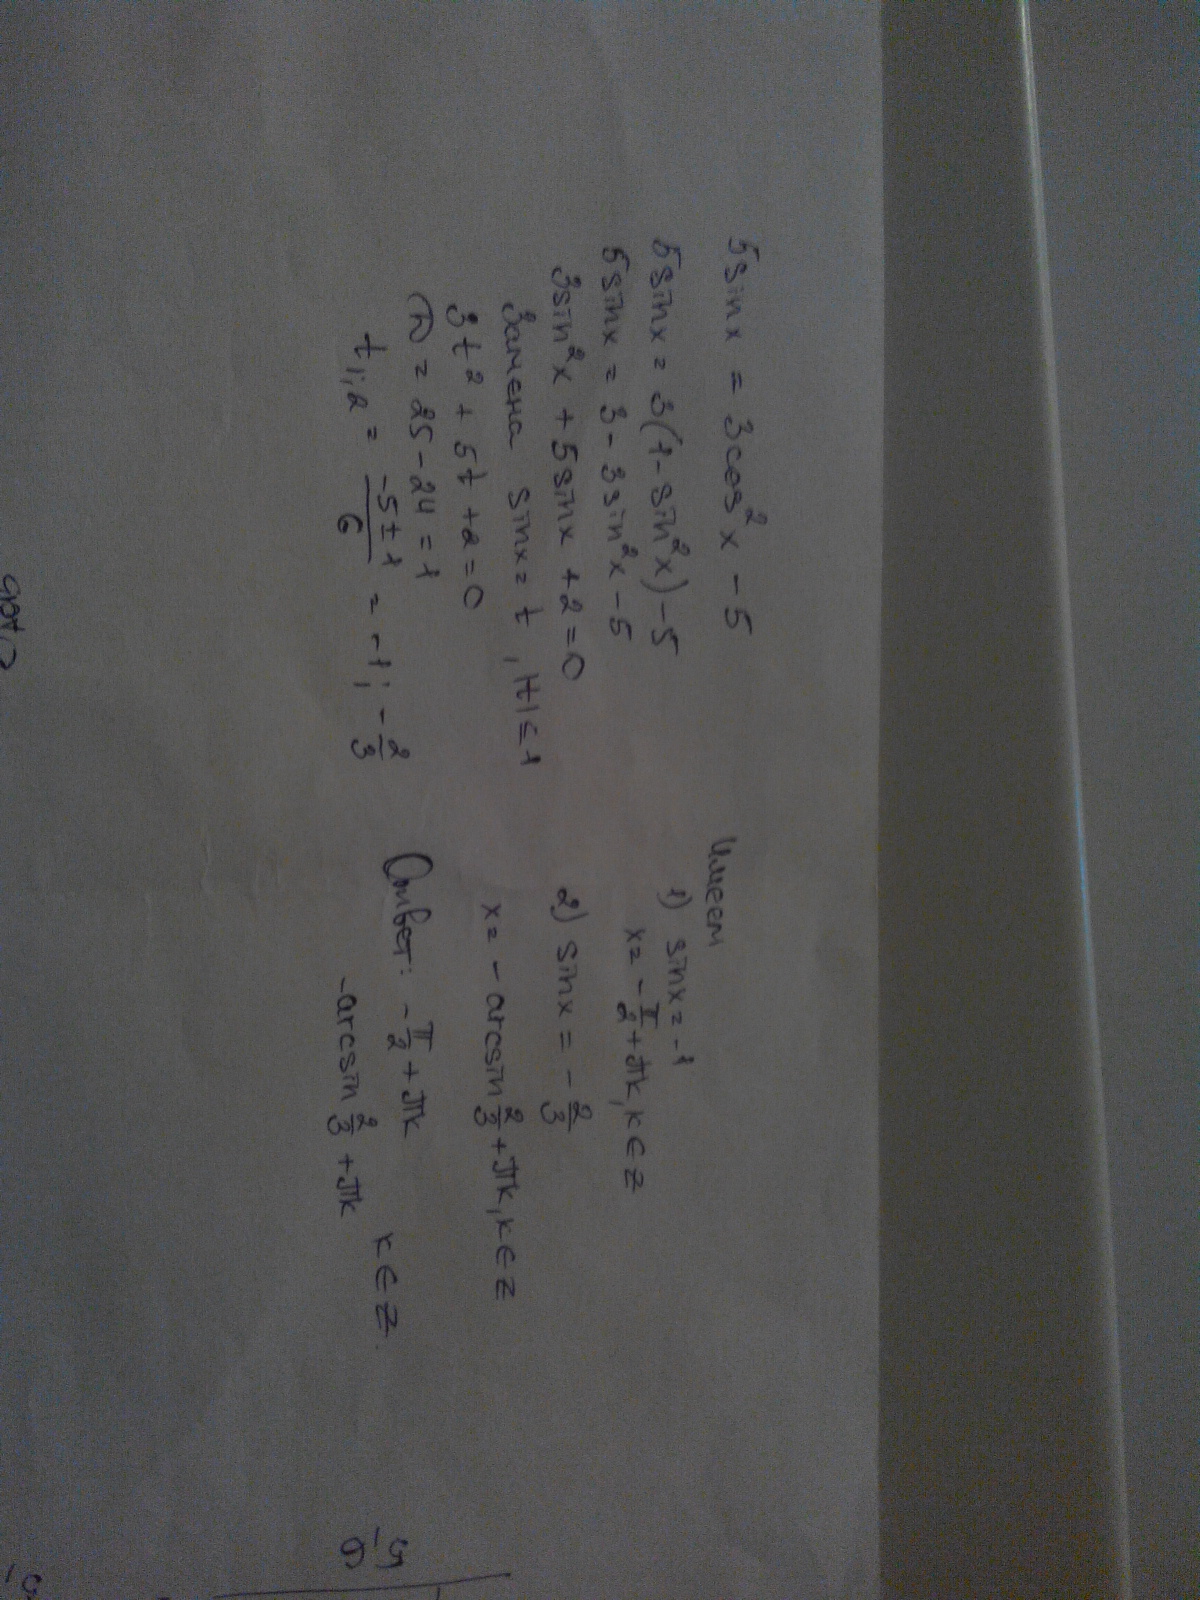 5 sin x = 3cos² x - 5
5 sin x = 3(1 - sin² x) - 5
5 sin x = 3 - 3 sin² x - 5
3 sin² x + 5 sin x + 2 = 0
Замена sin x = t, |t| ≤ 1
3t² + 5t + 2 = 0
D = 25 - 24 = 1
t₁;₂ = (-5 ± 1)/6 = -1; -2/3
Имеем
1) sin x = -1
x = -π/2 + πk, k ∈ Z
2) sin x = -2/3
x = - arcsin 2/3 + πk, k ∈ Z
Ответ: -π/2 + πk
-arcsin 2/3 + πk k ∈ Z